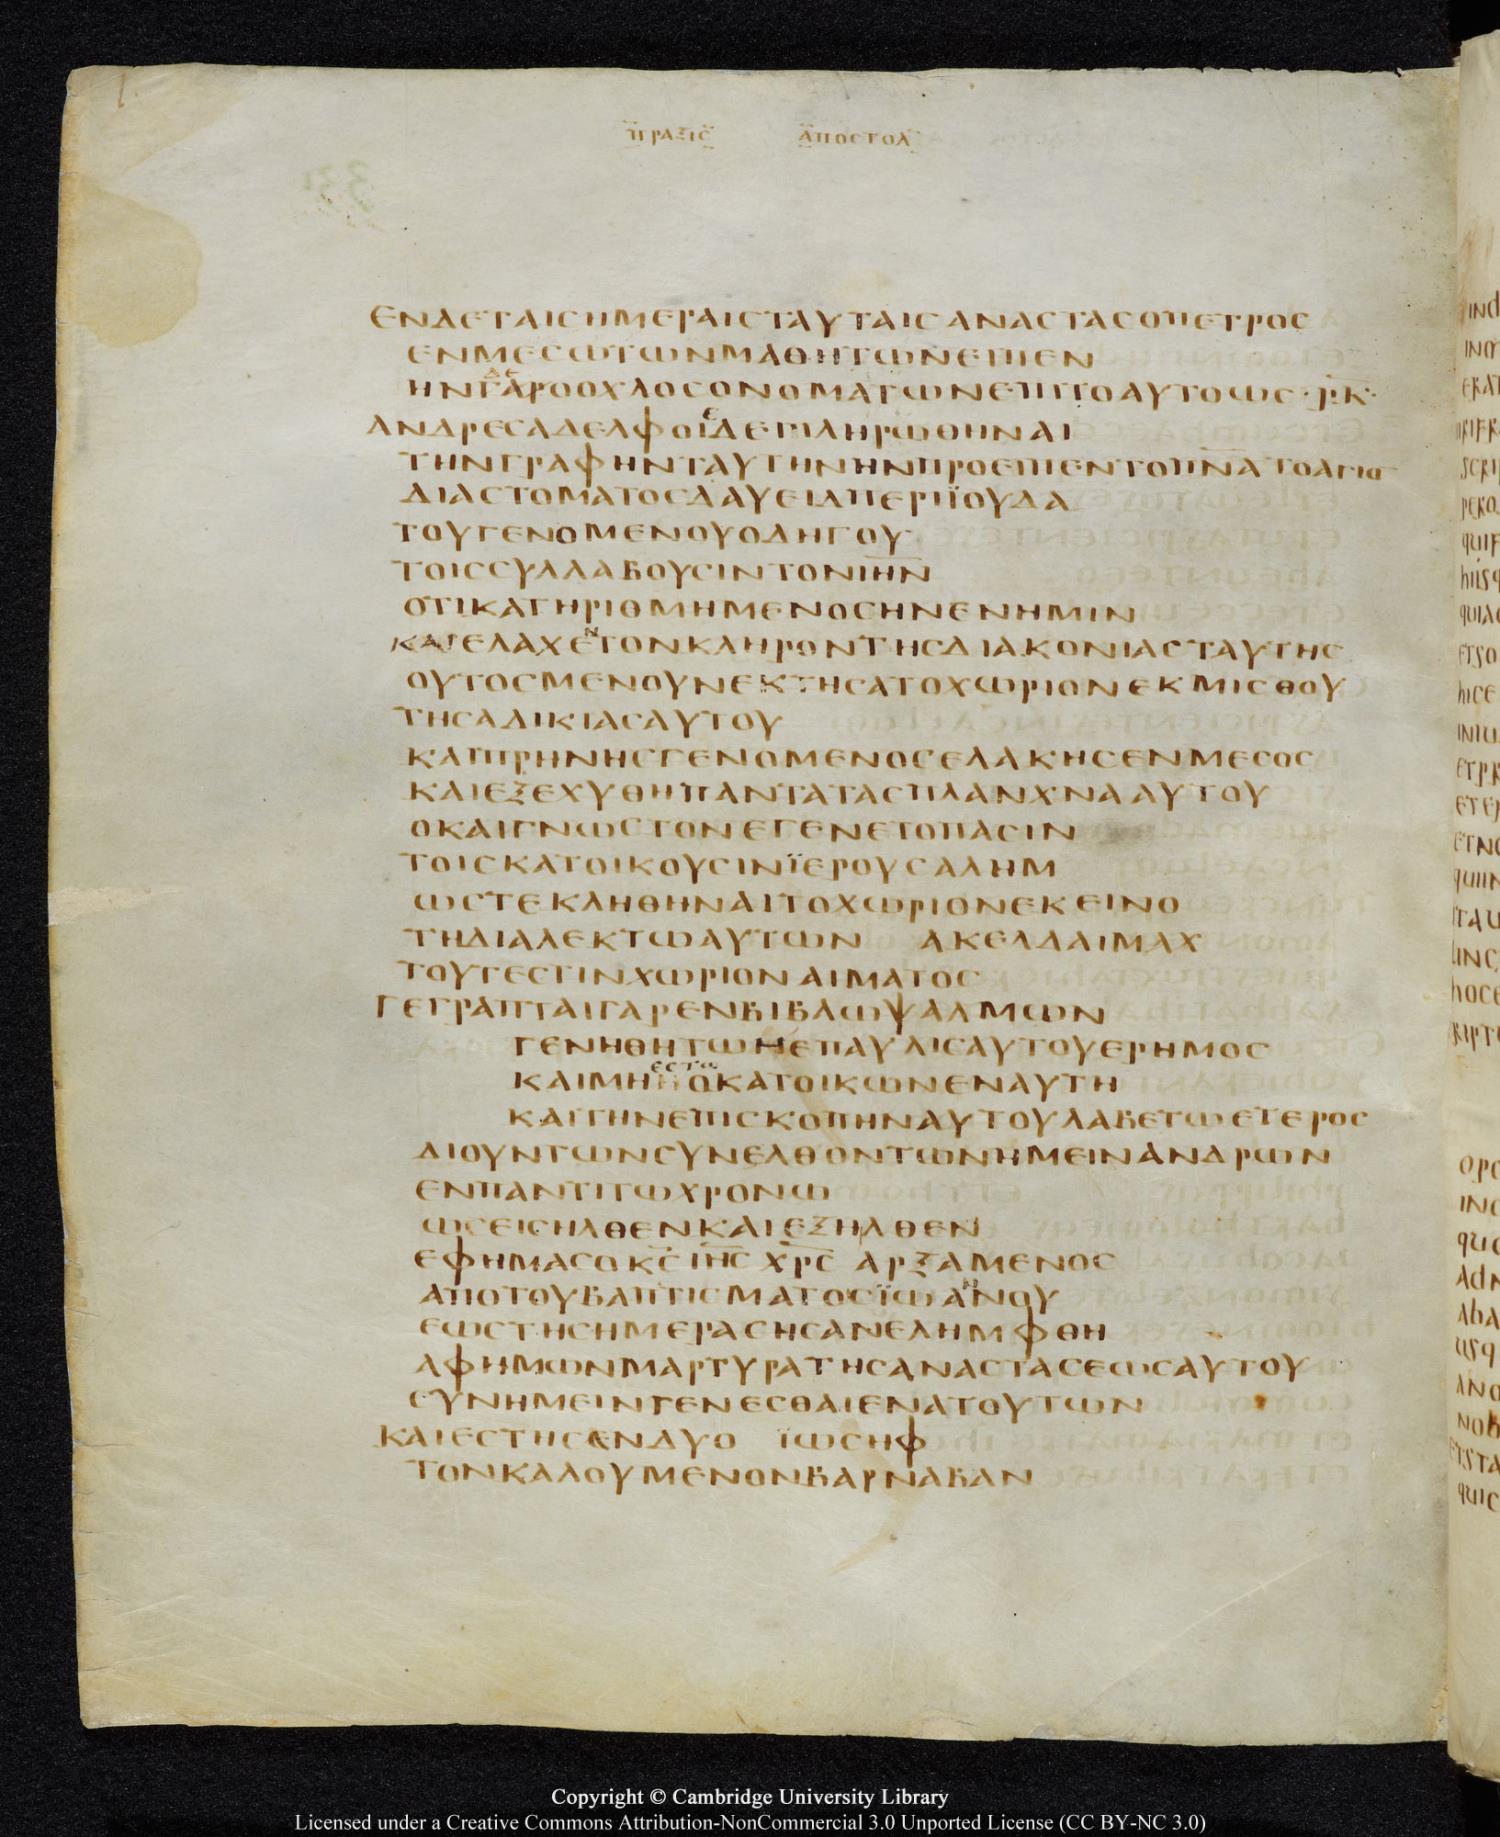 ΠΡΑΞΙΣ ΑΠΟΣΤΟΛ
ΕΝΔΕΤΑΙϹΗΜΕΡΑΙϹΤΑΥΤΑΙϹΑΝΑϹΤΑϹΟΠΕΤΡΟϹ
ΕΝΜΕϹΩΤΩΝΜΑΘΗΤΩΝΕΙΠΕΝ
ΗΝΓΑΡΟΟΧΛΟϹΟΝΟΜΑΤΩΝΕΠΙΤΟΑΥΤΟΩϹ·Ρ̅Κ̅·
ΑΝΔΡΕϹΑΔΕΛΦΟΙΔΕΙΠΛΗΡΩΘΗΝΑΙ
ΤΗΝΓΡΑΦΗΝΤΑΥΤΗΝΗΝΠΡΟΕΙΠΕΝΤΟΠ̅Ν̅Α̅ΤΟΑΓΙΟ̅
ΔΙΑϹΤΟΜΑΤΟϹΔΑΥΕΙΔΠΕΡΙΪΟΥΔΑ
ΤΟΥΓΕΝΟΜΕΝΟΥΟΔΗΓΟΥ
ΤΟΙϹϹΥΛΛΑΒΟΥϹΙΝΤΟΝΙ̅Η̅Ν̅
ΟΤΙΚΑΤΗΡΙΘΜΗΜΕΝΟϹΗΝΕΝΗΜΙΝ
ΚΑΙΕΛΑΧΕΝΤΟΝΚΛΗΡΟΝΤΗϹΔΙΑΚΟΝΙΑϹΤΑΥΤΗϹ
ΟΥΤΟϹΜΕΝΟΥΝΕΚΤΗϹΑΤΟΧΩΡΙΟΝΕΚΜΙϹΘΟΥ
ΤΗϹΑΔΙΚΙΑϹΑΥΤΟΥ
ΚΑΙΠΡΗΝΗϹΓΕΝΟΜΕΝΟϹΕΛΑΚΗϹΕΝΜΕϹΟϹ
ΚΑΙΕΞΕΧΥΘΗΠΑΝΤΑΤΑϹΠΛΑΝΧΝΑΑΥΤΟΥ
ΟΚΑΙΓΝΩϹΤΟΝΕΓΕΝΕΤΟΠΑϹΙΝ
ΤΟΙϹΚΑΤΟΙΚΟΥϹΙΝΪΕΡΟΥϹΑΛΗΜ
ΩϹΤΕΚΛΗΘΗΝΑΙΤΟΧΩΡΙΟΝΕΚΕΙΝΟ
ΤΗΔΙΑΛΕΚΤΩΑΥΤΩΝ ΑΚΕΛΔΑΙΜΑΧ
ΤΟΥΤΕϹΤΙΝΧΩΡΙΟΝΑΙΜΑΤΟϹ
ΓΕΓΡΑΠΤΑΙΓΑΡΕΝΒΙΒΛΩΨΑΛΜΩΝ
ΓΕΝΗΘΗΤΩΗΕΠΑΥΛΙϹΑΥΤΟΥΕΡΗΜΟϹ
ΚΑΙΜΗΕϹΤΩΟΚΑΤΟΙΚΩΝΕΝΑΥΤΗ
ΚΑΙΤΗΝΕΠΙϹΚΟΠΗΝΑΥΤΟΥΛΑΒΕΤΩΕΤΕΡΟϹ
ΔΙΟΥΝΤΩΝϹΥΝΕΛΘΟΝΤΩΝΗΜΕΙΝΑΝΔΡΩΝ
ΕΝΠΑΝΤΙΤΩΧΡΟΝΩ
ΩϹΕΙϹΗΛΘΕΝΚΑΙΕΞΗΛΘΕΝ
ΕΦΗΜΑϹΟΚ̅Ϲ̅Ι̅Η̅Ϲ̅ Χ̅Ρ̅Ϲ̅ ΑΡΞΑΜΕΝΟϹ
ΑΠΟΤΟΥΒΑΠΤΙϹΜΑΤΟϹΪΩΑΝΝΟΥ
ΕΩϹΤΗϹΗΜΕΡΑϹΗϹΑΝΕΛΗΜΦΘΗ
ΑΦΗΜΩΝΜΑΡΤΥΡΑΤΗϹΑΝΑϹΤΑϹΕΩϹΑΥΤΟΥ
ϹΥΝΗΜΕΙΝΓΕΝΕϹΘΑΙΕΝΑΤΟΥΤΩΝ
ΚΑΙΕϹΤΗϹΕΝΔΥΟ ΪΩϹΗΦ
ΤΟΝΚΑΛΟΥΜΕΝΟΝΒΑΡΝΑΒΑΝ
Copyright © Cambridge University Library
Licensed under a Creative Commons Attribution-NonCommercial 3.0 Unported License (CC BY-NC 3.0)